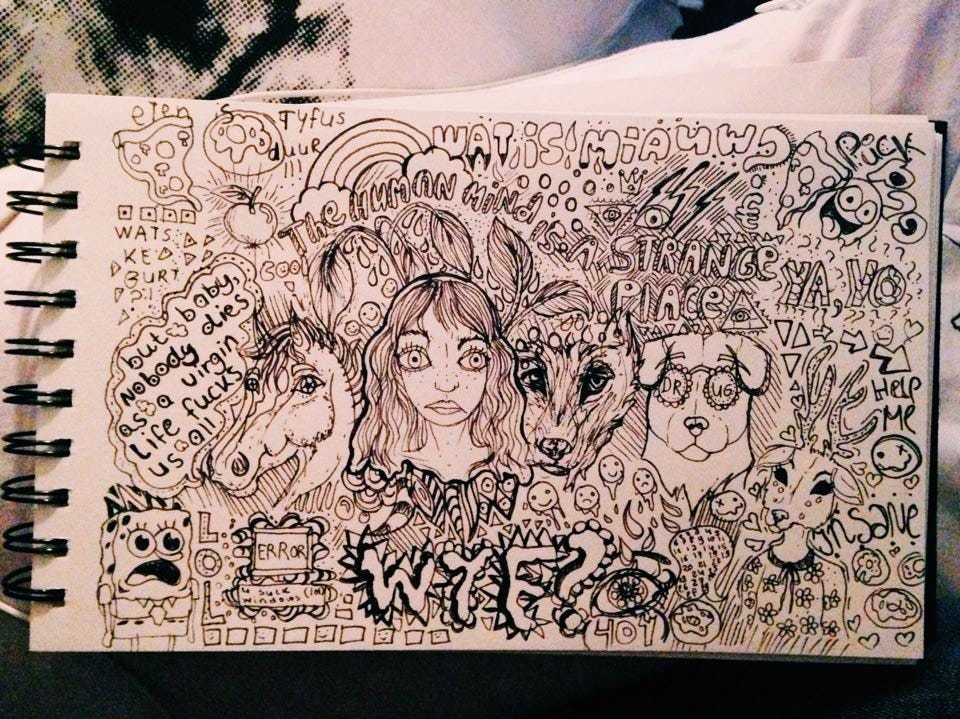 eten
Tyfus
duur
WAT iS! MiAUW
The HUMAN MIND
is A STRANGE
PLACE
WATS
KE
BURT
?!
COOL
but baby,
nobody dies
as a virgin
life fucks
us all
YA, YO
HELP
ME
INSANE
LOL
ERROR
u suck
WTF?